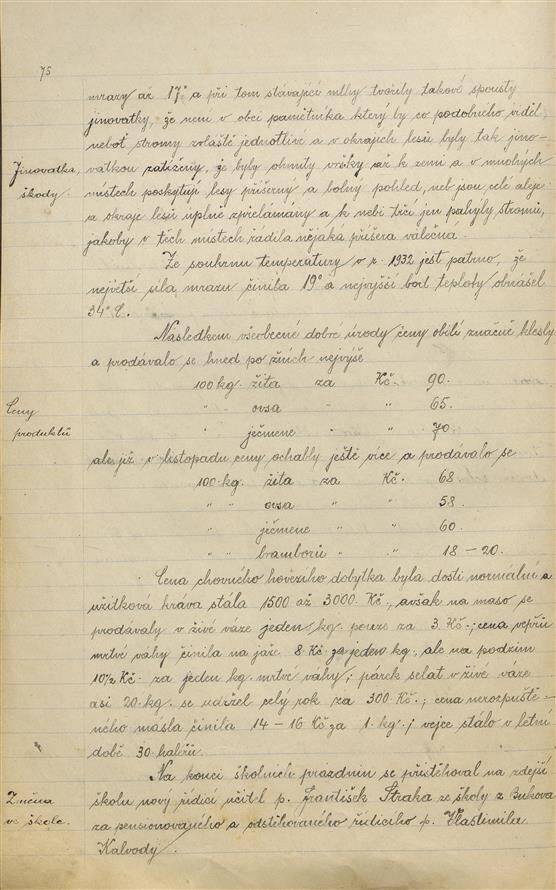 75
mrazy až 17° a při tom stávající mlhy tvořily takové spousty
jinovatky, že není v obci pamětníka který by co podobného viděl,
neboť stromy zvláště jednotlivé a v okrajích lesů byly tak jino-
Jinovatka,
škody.
vatkou zatíženy, že byly ohnuty vršky až k zemi a v mnohých
místech poskytují lesy příšerný a bolný pohled, neb jsou celé aleje
a okraje lesů úplně zpřelámány a k nebi trčí jen pahýly stromů,
jakoby v těch místech řádila nějaká příšera válečná.
Ze souhrnu temperatury v r. 1932 jest patrno, že
největší síla mrazu činila 19° a nejvyšší bod teploty obnášel
34° C.
Následkem všeobecné dobré úrody ceny obilí značně klesly
a prodávalo se hned po žních nejvýše
100 kg. žita za Kč. 90.
Ceny
produktů
" " ovsa " " 65.
" ječmene " " 70.
ale již v listopadu ceny ochably ještě více a prodávalo se
100 kg. žita za Kč. 68.
" " ovsa " " 58.
ječmene " " 60.
" " bramborů " " 18 – 20.
Cena chovného hovězího dobytka byla dosti normálné a
užitková kráva stála 1500 až 3000 Kč., avšak na maso se
prodávaly v živé váze jeden kg. pouze za 3. Kč.; cena vepřů
mrtvé váhy činila na jaře 8 Kč. za jeden kg., ale na podzim
10½ Kč. za jeden kg. mrtvé váhy; párek selat v živé váze
asi 20. kg. se udržel celý rok za 300 Kč.; cena nerozpuště-
ného másla činila 14 – 16 Kč za 1. kg.; vejce stálo v letní
době 30 haléřů.
Na konci školních prázdnin se přistěhoval na zdejší
Změna
ve škole.
školu nový řídící učitel p. František Straka ze školy z Bukova
za pensionovaného a odstěhovaného řídícího p. Vlastimila
Kalvody.